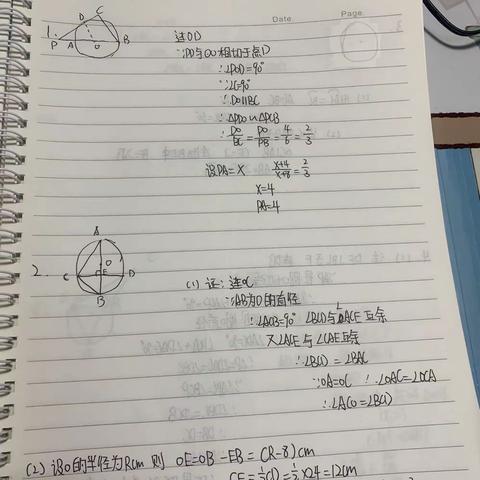 Date
Page
1.
D
C
P
A
O
B
连OD
∵PD与⊙O相切于点D
∴∠PDO=90°
∵∠C=90°
∴DO∥BC
∴△PDO∽△PCB
∴DO/BC=PO/PB=4/6=2/3
设PA=X (X+4)/(X+8)=2/3
X=4
PA=4
2.
A
O
C
E
D
B
(1) 证:连OC
∵AB为O的直径
∴∠ACB=90° ∠BCD与∠ACE互余
又∠ACE与∠CAE互余
∴∠BCD=∠BAC
∵OA=OC ∴∠OAC=∠OCA
∴∠ACO=∠BCD
(2) 设O的半径为Rcm 则 OE=OB-EB=(R-8)cm
CE=½CD=½×24=12cm